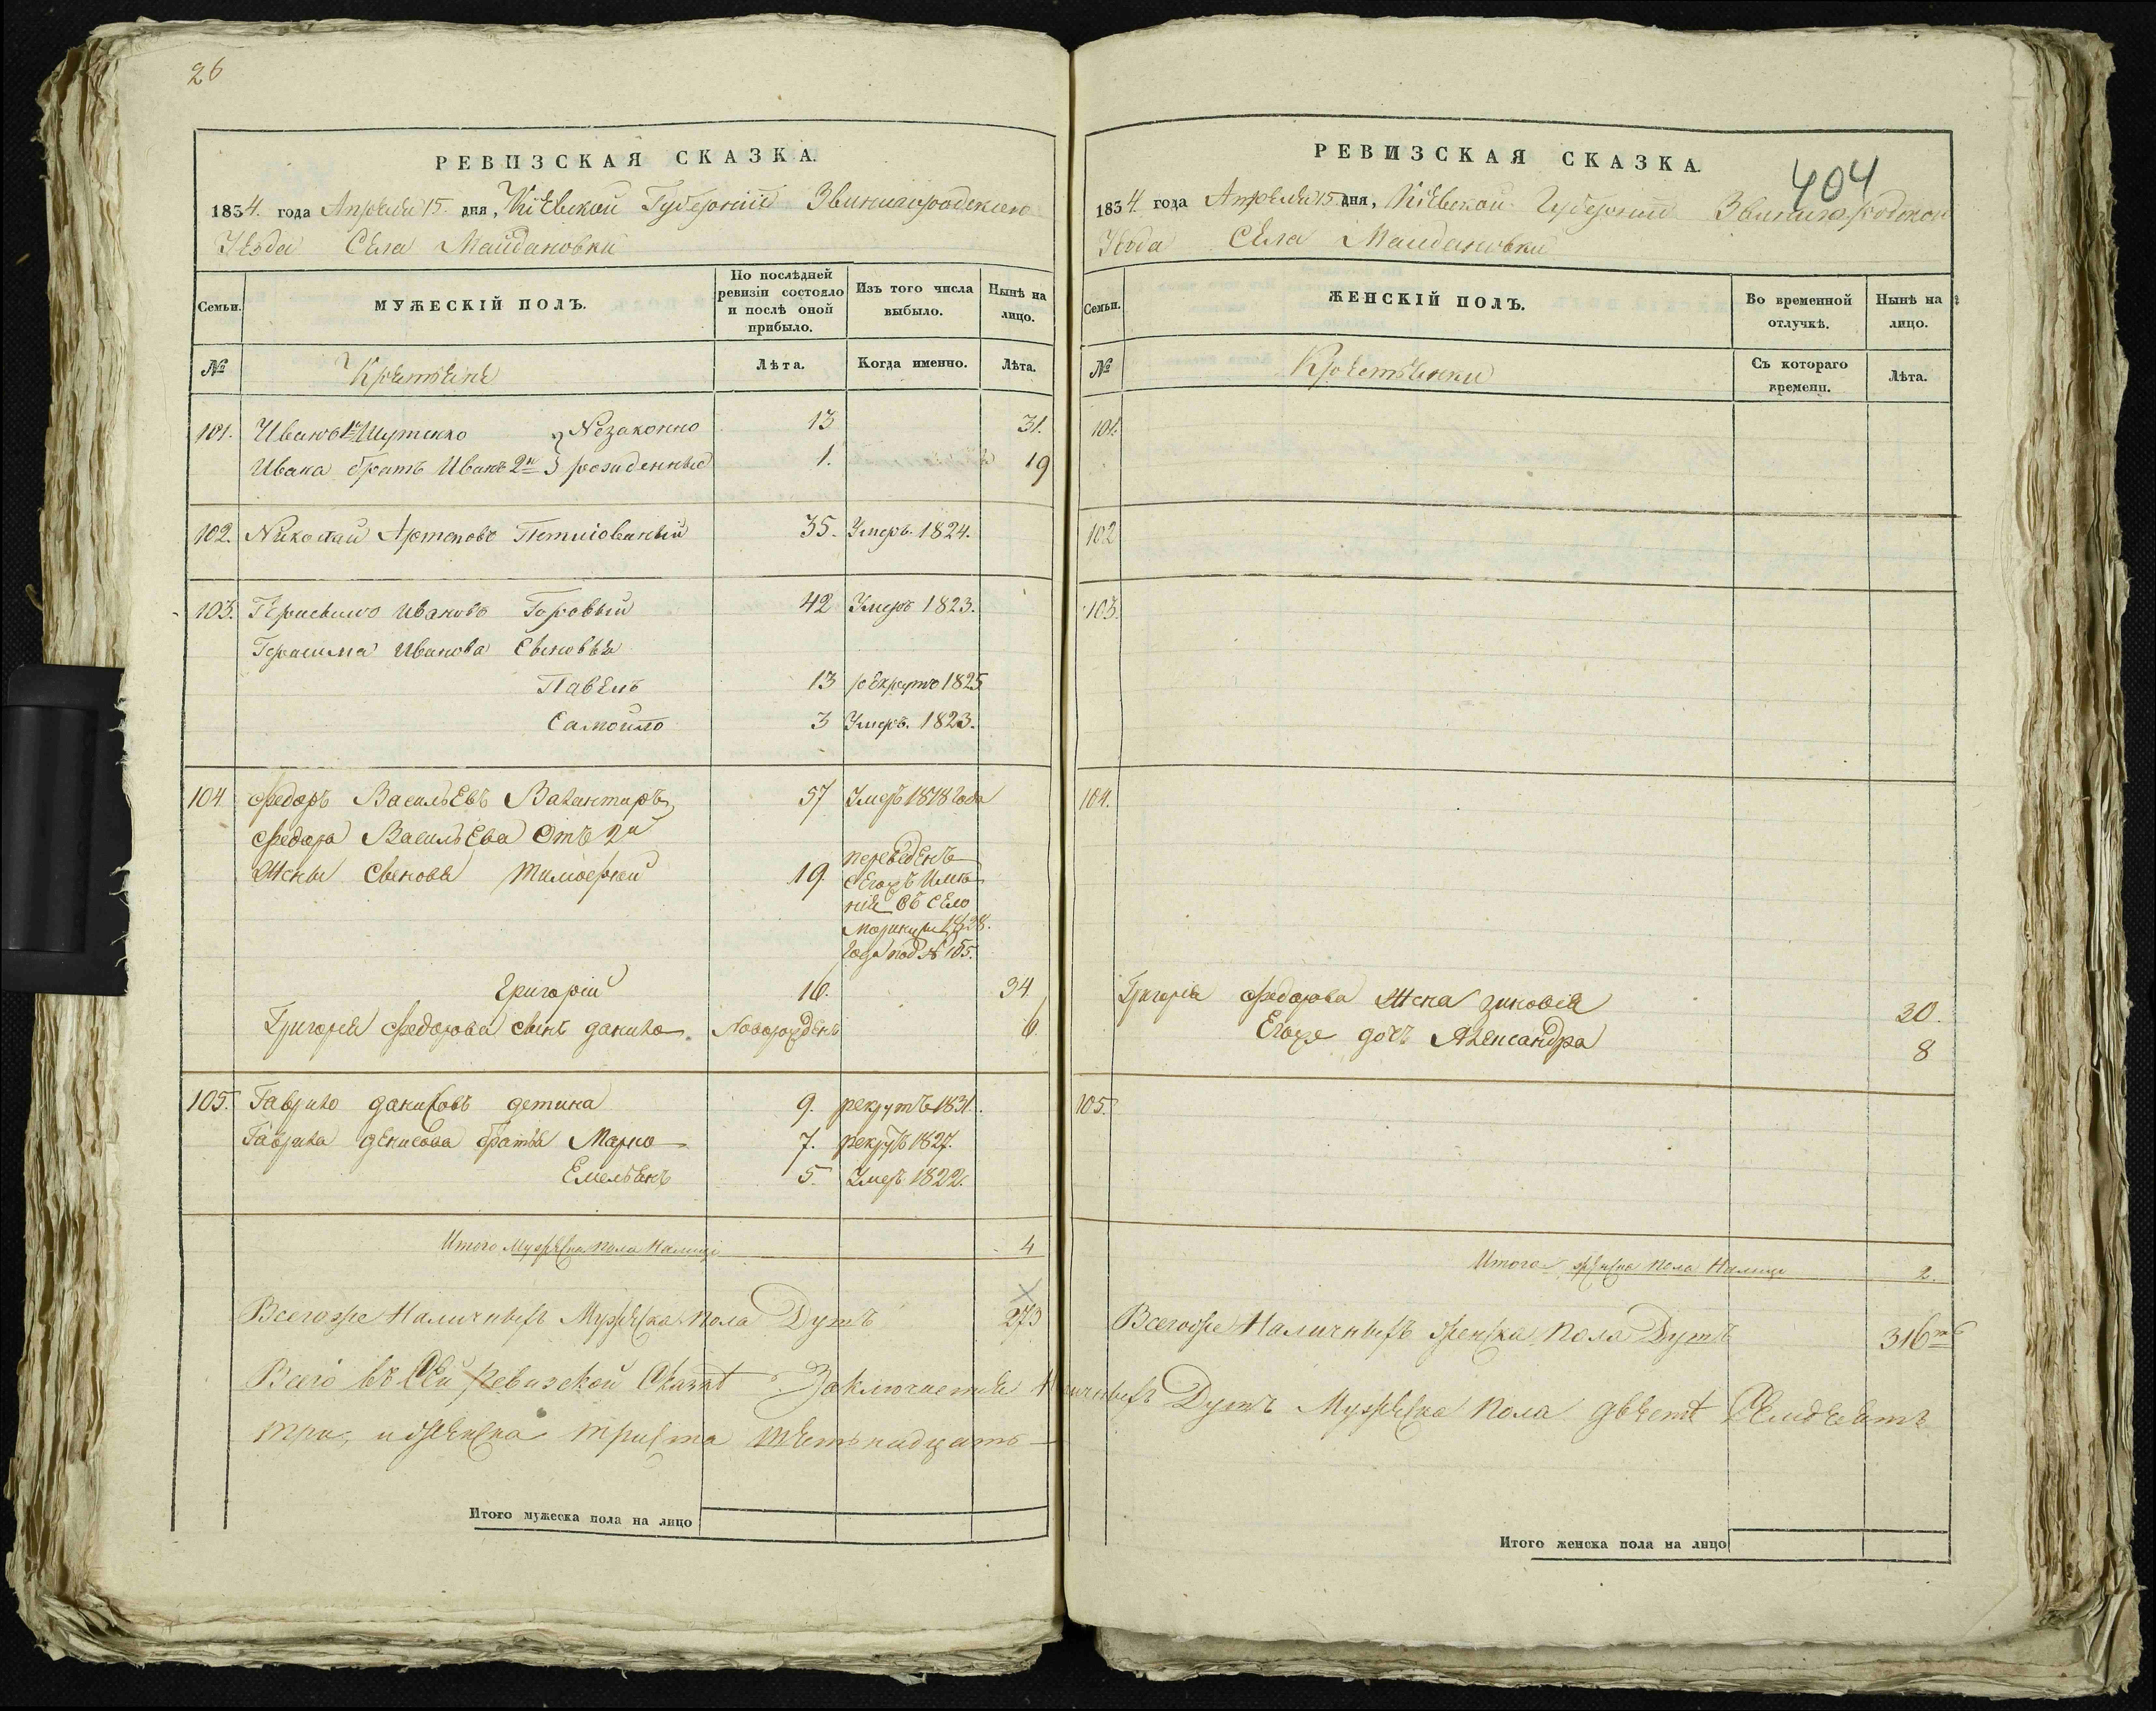 26
РЕВИЗСКАЯ СКАЗКА.
1834. года Апреля 15. дня, Кіевской Губерніи Звенигородского
Уезда Села Майдановки
Семьи.
МУЖЕСКІЙ ПОЛЪ.
По послѣдней ревизіи состояло и послѣ оной прибыло.
Изъ того числа выбыло.
Нынѣ на лицо.
№
Крестьяне
Лѣта.
Когда именно.
Лѣта.
101. Иванъ 1й Шутенко } Незаконно 13 31.
Ивана братъ Иванъ 2й } рожденные 1. 19
102. Николай Артемовъ 35. Умеръ. 1824.
103. Герасимъ Ивановъ Горовый 42 Умеръ 1823.
Герасима Иванова Сыновья
Павелъ 13 рекрутъ 1825
Самойло 3 Умеръ. 1823.
104 Федоръ Васильевъ 57 Умеръ 1818 года
Федора Васильева Отъ 2й
Жены Сыновья Тимофей 19. переведенъ
с Егожъ Име
ніе въ село
1828.
года под № 105.
Григорій 16. 34
Григорія Федорова сынъ данило Новорожденъ 6.
105. Гаврило даниловъ детина 9. рекрутъ 1831.
Гаврила денисова братья Марко 7. рекрутъ 1827.
Емельянъ 5. Умеръ 1822.
Итого Мужеска пола Налицо 4
Всегоже Наличныхъ Мужеска пола Душъ 273
Всего въ Сей ревизской Сказкѣ Заключается
три, и женска триста шестьнадцать
Итого мужеска пола на лицо
РЕВИЗСКАЯ СКАЗКА.
404
1834. года Апреля 15. дня, Кіевской Губерніи
Уезда Села Майдановки
Семьи.
ЖЕНСКІЙ ПОЛЪ.
Во временной отлучкѣ.
Нынѣ на лицо.
№
Крестьянки
Съ котораго времени.
Лѣта.
101.
102
103.
104.
Григорія Федорова Жена зиновія 30.
Егоже дочъ Александра 8
105.
Итого женска пола Налицо 2.
Всегоже Наличныхъ женска пола Душъ 316
Душъ Мужеска пола двѣстѣ Семдесятъ
Итого женска пола на лицо